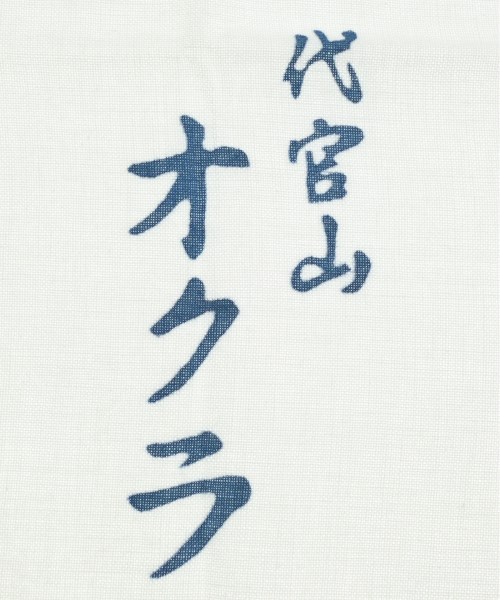 代官山
オクラ